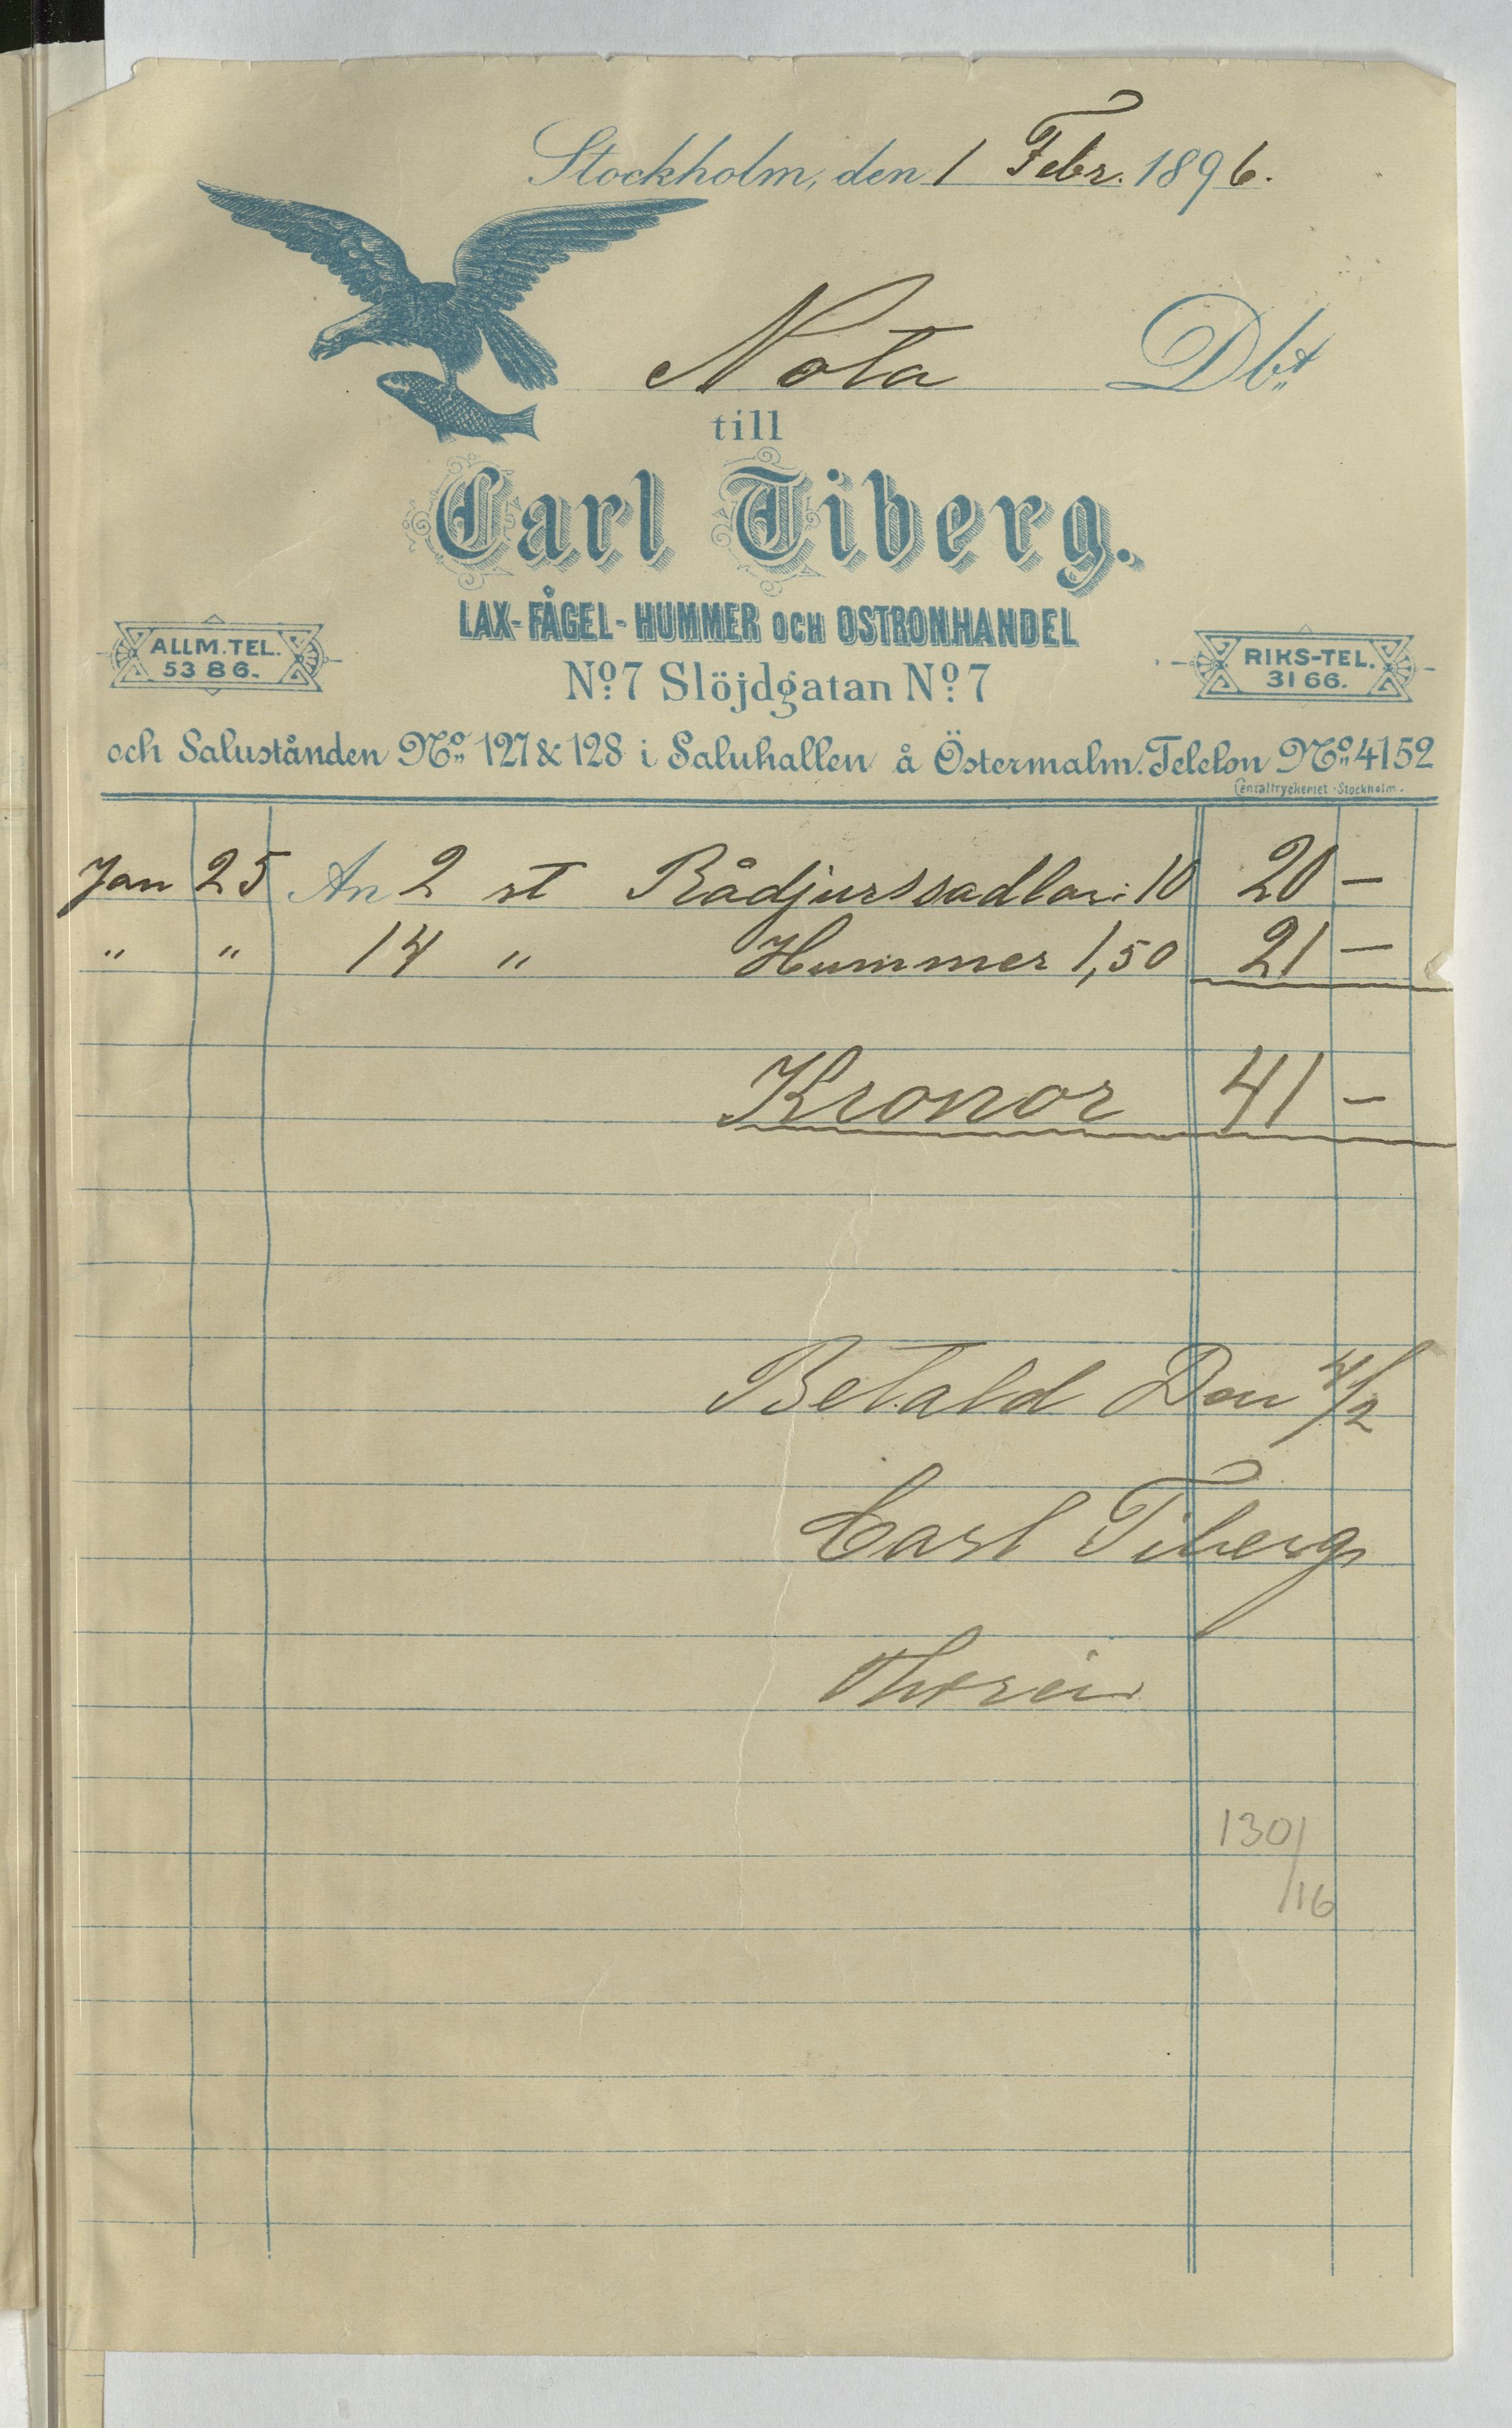 Stockholm, den 1 Febr. 1896.
Nota Dbt
till
Carl Tiberg.
LAX-FÅGEL-HUMMER OCH OSTRONHANDEL
ALLM. TEL. 5386.
No 7 Slöjdgatan No 7
RIKS-TEL. 3166.
och Salustånden No 127 & 128 i Saluhallen å Östermalm. Telefon No 4152
Centraltryckeriet Stockholm.
Jan 25 An 2 st Rådjurssadlar: 10 20 —
" " 14 " Hummer 1,50 21 —
Kronor 41 —
Betald Den 4/2
Carl Tiberg
130/16